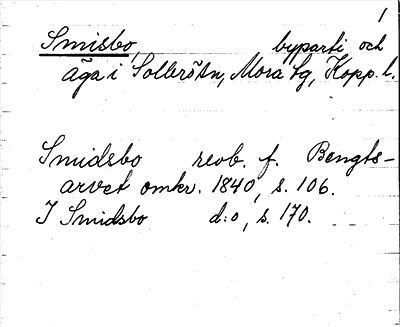 1
Smisbo, byparti och
äga i Sollerö sn, Mora tg, Kopp. l.
Smidsbo reob. f. Bengts-
arvet omkr. 1840, s. 106.
I Smidsbo d:o, s. 170.